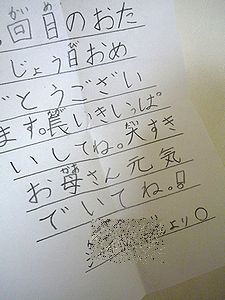 回目のおた
じょう日おめ
でとうござい
ます。長いきいっぱ
いしてね。笑すき
お母さん元気
でいてね。!
より〇